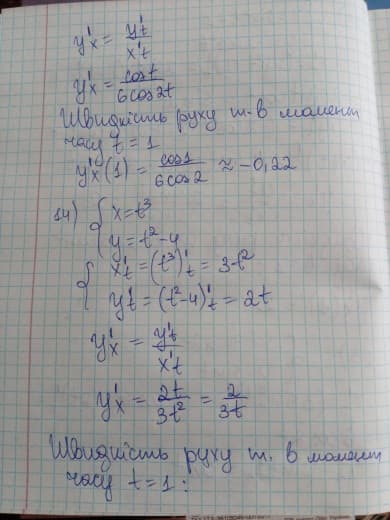 y'x = y't / x't
y'x = cost / 6cos2t
Швидкість руху т. в момент
часу t = 1
y'x(1) = cos1 / 6cos2 ≈ -0,22
14) { x=t³
y=t²-4
{ x't = (t³)'t = 3t²
y't = (t²-4)'t = 2t
y'x = y't / x't
y'x = 2t / 3t² = 2 / 3t
Швидкість руху т. в момент
часу t=1: